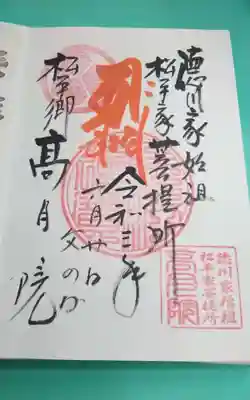 徳川家始祖
松平家菩提所
令和三年
六月廿日
父の日
松平郷 高月院
徳川家始祖
松平家菩提所
高月院